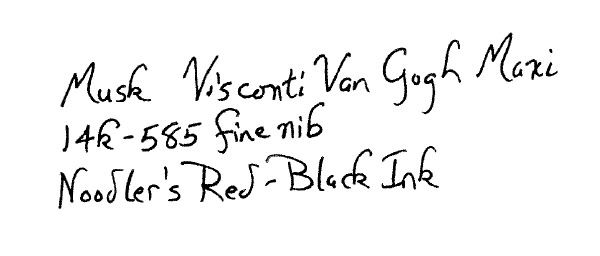 Musk Visconti Van Gogh Maxi
14k-585 fine nib
Noodler's Red-Black Ink